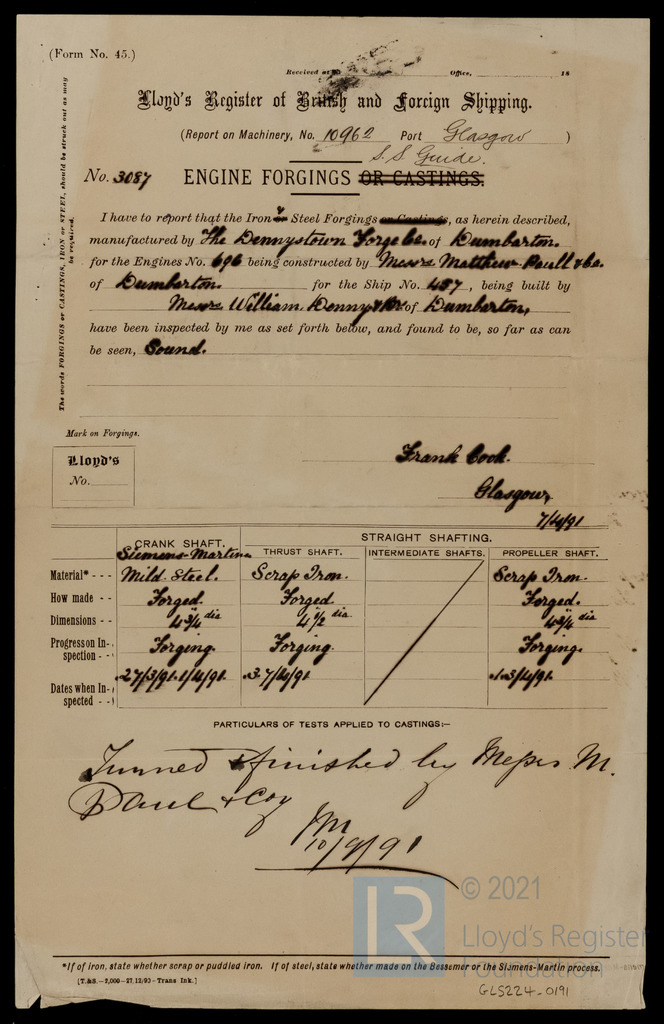 (Form No. 45.)
Received at Office, 18
Lloyd's Register of British and Foreign Shipping.
(Report on Machinery, No. 10962 Port Glasgow )
S.S Guide.
No. 3087 ENGINE FORGINGS OR CASTINGS.
The words FORGINGS or CASTINGS, IRON or STEEL, should be struck out as may be required.
I have to report that the Iron & Steel Forgings or Castings, as herein described,
manufactured by The Dennystown Forge Co. of Dumbarton.
for the Engines No. 696 being constructed by Messrs Matthew Paull & Co.
of Dumbarton. for the Ship No. 457, being built by
Messrs William Denny & Bros of Dumbarton,
have been inspected by me as set forth below, and found to be, so far as can
be seen, Sound.
Mark on Forgings.
Lloyd's
No.
Frank Cock.
Glasgow,
7/4/91
CRANK SHAFT. STRAIGHT SHAFTING.
THRUST SHAFT. INTERMEDIATE SHAFTS. PROPELLER SHAFT.
Siemens-Martins
Material* - - - Mild Steel. Scrap Iron. Scrap Iron.
How made - - Forged. Forged. Forged.
Dimensions - - 4¾" dia 4½" dia 4¾" dia
Progress on In-
spection - - Forging. Forging. Forging.
Dates when In-
spected - - 27/3/91. 1/4/91. 3. 7/4/91 1. 3/4/91.
PARTICULARS OF TESTS APPLIED TO CASTINGS:—
Turned & finished by Messrs M.
Paul & Coy
10/9/91
© 2021
LR
Lloyd's Register
Foundation
*If of iron, state whether scrap or puddled iron. If of steel, state whether made on the Bessemer or the Siemens-Martin process.
[T.&S.—2,000—27,12/90—Trans Ink.]
GLS224-0191